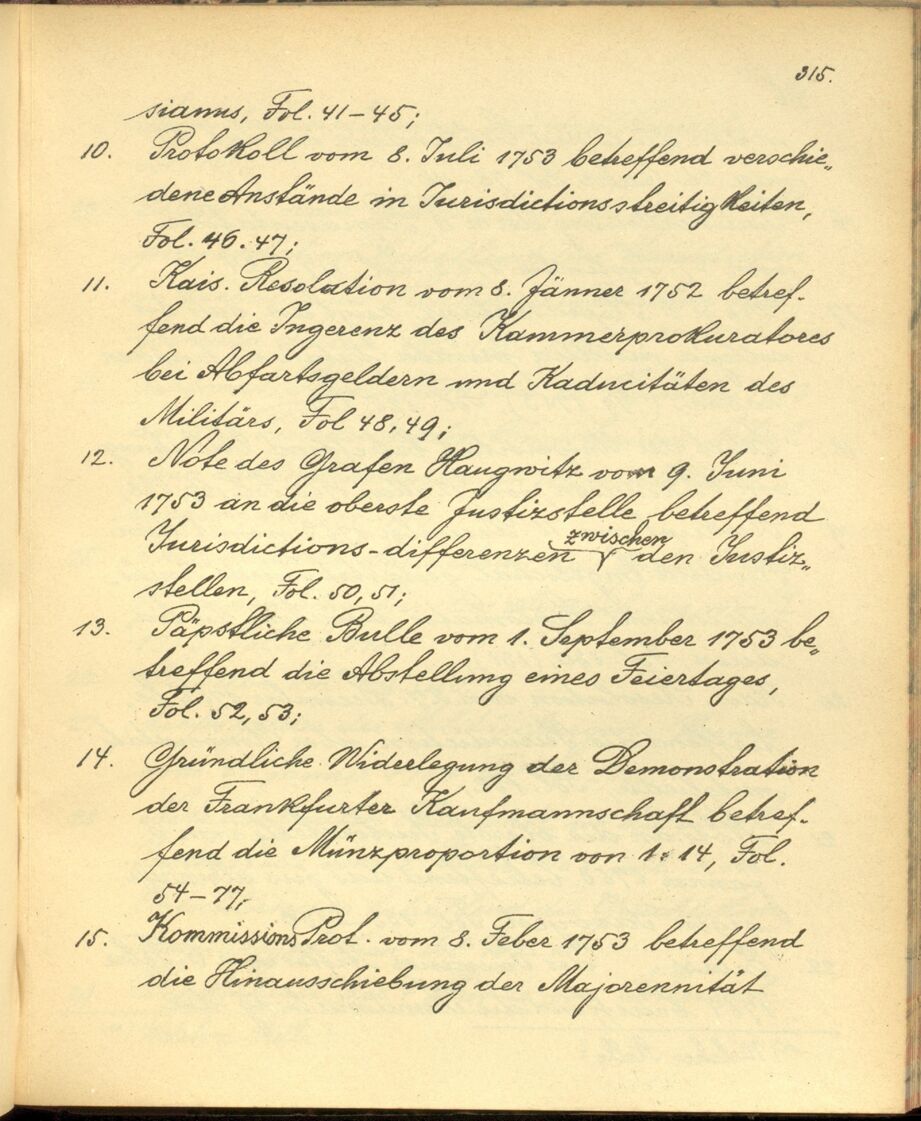 315.
sianus, Fol. 41-45;
10. Protokoll vom 8. Juli 1753 betreffend verschie„
dene Anstände in Jurisdictionsstreitigkeiten,
Fol. 46. 47;
11. Kais. Resolution vom 8. Jänner 1752 betref-
fend die Ingerenz des Kammerprokuratores
bei Abfartsgeldern und Kaducitäten des
Militärs, Fol 48, 49;
12. Note des Grafen Haugwitz vom 9. Juni
1753 an die oberste Justizstelle betreffend
Jurisdictions-differenzen zwischen den Justiz„
stellen, Fol. 50, 51;
13. Päpstliche Bulle vom 1. September 1753 be„
treffend die Abstellung eines Feiertages,
Fol. 52, 53;
14. Gründliche Widerlegung der Demonstration
der Frankfurter Kaufmannschaft betref-
fend die Münzproportion von 1:14, Fol.
54-77;
15. Kommissions Prot. vom 8. Feber 1753 betreffend
die Hinausschiebung der Majorennität